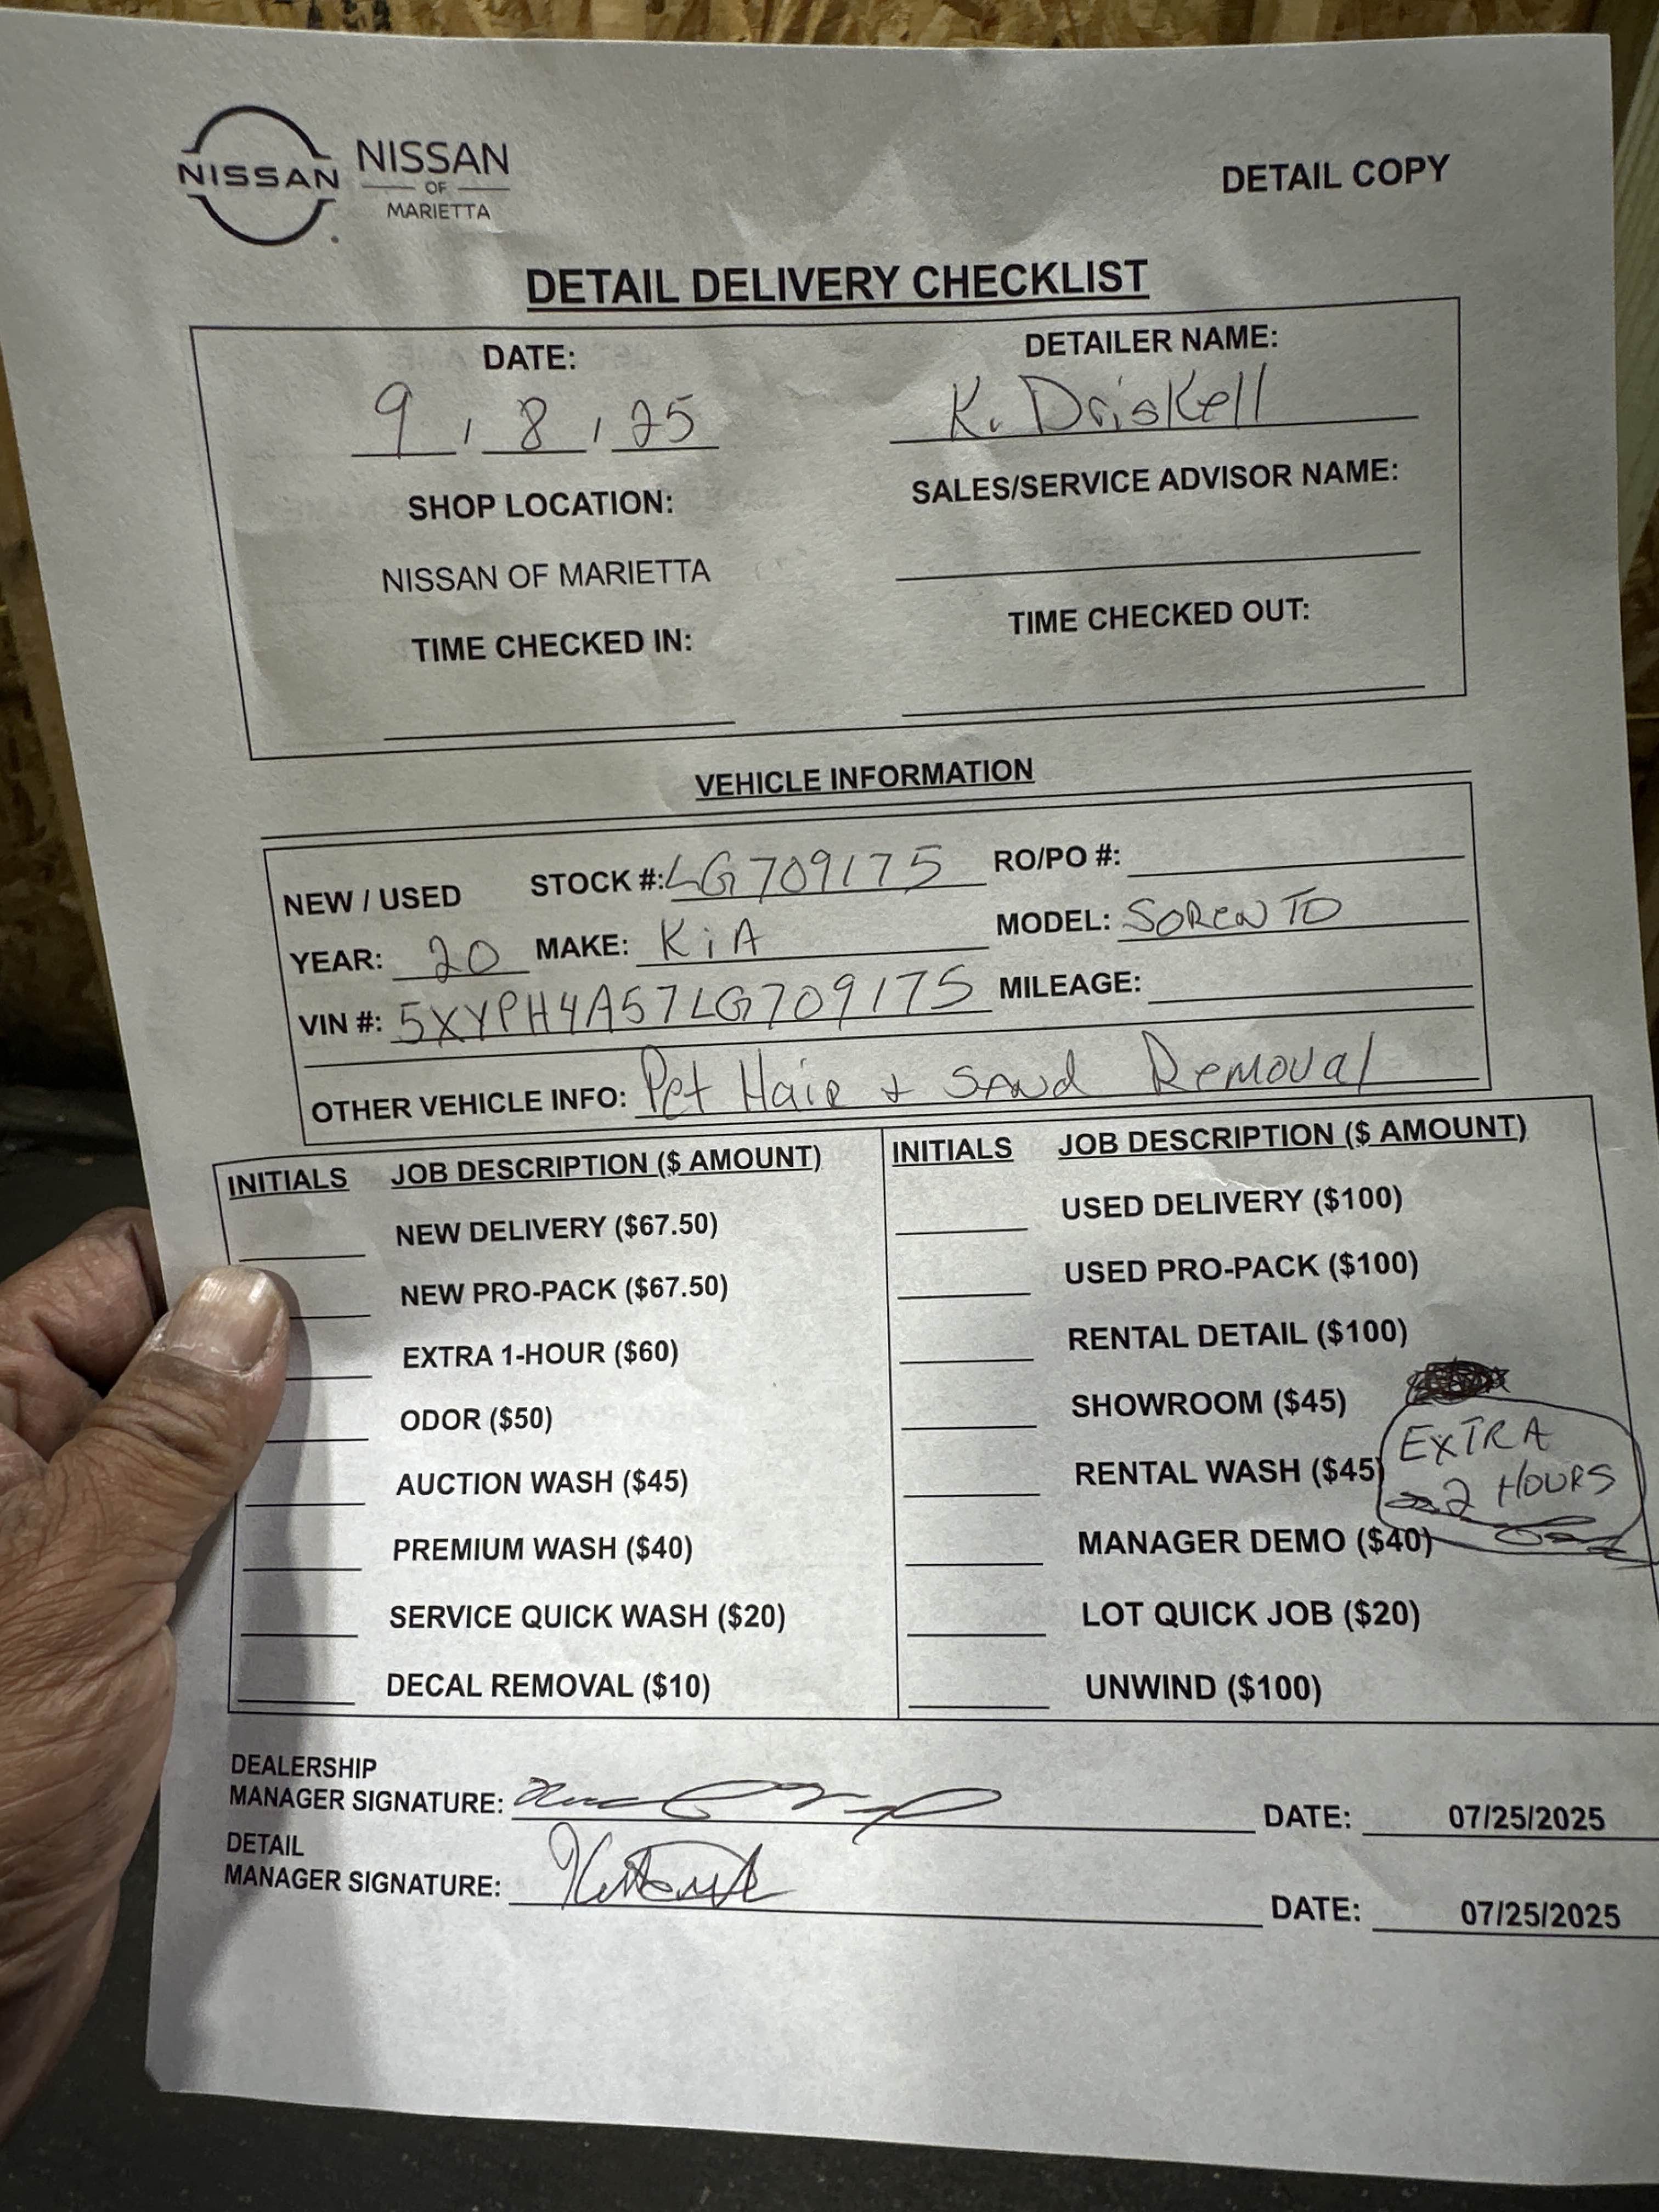 NISSAN
NISSAN
OF
MARIETTA
DETAIL COPY
DETAIL DELIVERY CHECKLIST
DATE:
9 / 8 / 25
DETAILER NAME:
K. Driskell
SHOP LOCATION:
NISSAN OF MARIETTA
SALES/SERVICE ADVISOR NAME:
TIME CHECKED IN:
TIME CHECKED OUT:
VEHICLE INFORMATION
NEW / USED STOCK #: LG709175 RO/PO #:
YEAR: 20 MAKE: KiA MODEL: SORENTO
VIN #: 5XYPH4A57LG709175 MILEAGE:
OTHER VEHICLE INFO: Pet Hair + Sand Removal
INITIALS JOB DESCRIPTION ($ AMOUNT)
NEW DELIVERY ($67.50)
NEW PRO-PACK ($67.50)
EXTRA 1-HOUR ($60)
ODOR ($50)
AUCTION WASH ($45)
PREMIUM WASH ($40)
SERVICE QUICK WASH ($20)
DECAL REMOVAL ($10)
INITIALS JOB DESCRIPTION ($ AMOUNT)
USED DELIVERY ($100)
USED PRO-PACK ($100)
RENTAL DETAIL ($100)
SHOWROOM ($45)
RENTAL WASH ($45)
MANAGER DEMO ($40)
LOT QUICK JOB ($20)
UNWIND ($100)
EXTRA
2 HOURS
DEALERSHIP
MANAGER SIGNATURE: DATE: 07/25/2025
DETAIL
MANAGER SIGNATURE: DATE: 07/25/2025